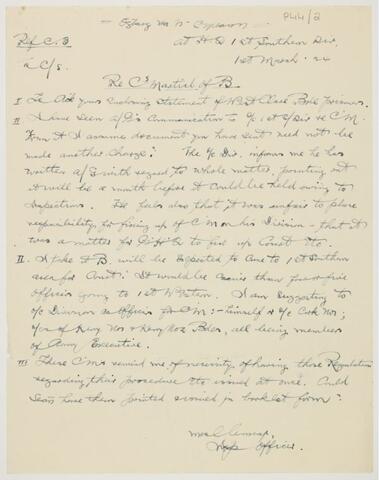 P44/2
Ref C. 3
At H.Q. 1st Southern Div.
1st March. 24
a C/S.
Re Cs Martial of B.
I To Ack yours enclosing Statement of
II I have seen A/G's Communication to O/C 1st S/Div re C M.
From it I assume document you have sent need not be
made another Charge? The O/C Div. informs me he has
written A/G with regard to whole matter, pointing out
it will be a month before it could be held owing to
Inspections. He feels also that it was unfair to place
responsibility for fixing up of C M on his Division - that it
was a matter for G.H.Q to fix up Court etc.
II. I take it B. will be expected to come to 1st Southern
area for Court. It would be easier than four or five
officers going to 1st Western. I am suggesting to
O/C Division as officers for C M :- himself & O/C Cork No 1;
O/C of Kerry No 1 & Kerry No 2 Bdes, all being members
of Army Executive.
III These C Ms remind me of necessity of having those Regulations
regarding this procedure etc issued at once. Could
you have them printed & issued in booklet form?
Officer.